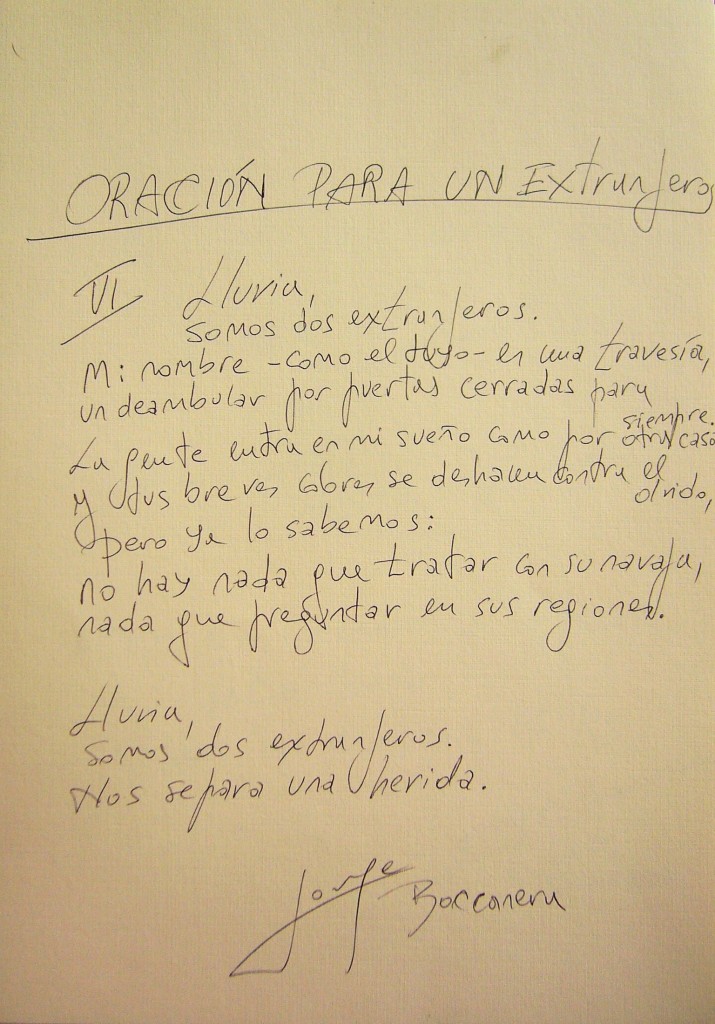 ORACIÓN PARA UN Extranjero
VI Lluvia,
somos dos extranjeros.
Mi nombre - como el tuyo - es una travesía,
un deambular por puertas cerradas para siempre.
La gente entra en mi sueño como por otra casa
y tus breves cobres se deshacen contra el olvido,
pero ya lo sabemos:
no hay nada que tratar con su navaja,
nada que preguntar en sus regiones.
Lluvia,
somos dos extranjeros.
Nos separa una herida.
Jorge Boccanera